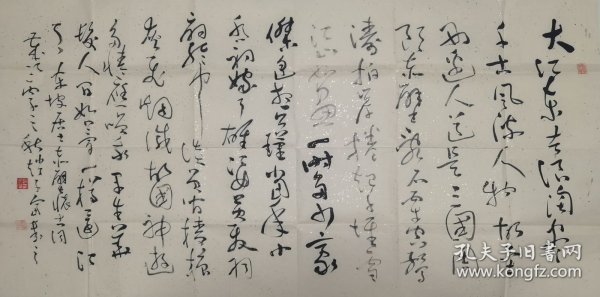 大江东去浪淘尽
千古风流人物故
西边人道是三国
赤壁乱石穿空惊
涛拍岸卷起千堆雪
江山如画一时多少豪
杰遥想公瑾当年小
乔初嫁了雄姿英发羽
扇纶巾谈笑间樯橹
灰飞烟灭故国神游
多情应笑我早生华
发人间如梦一樽还江
月 东坡居士赤壁怀古词
孔夫子旧书网
www.kongfz.com